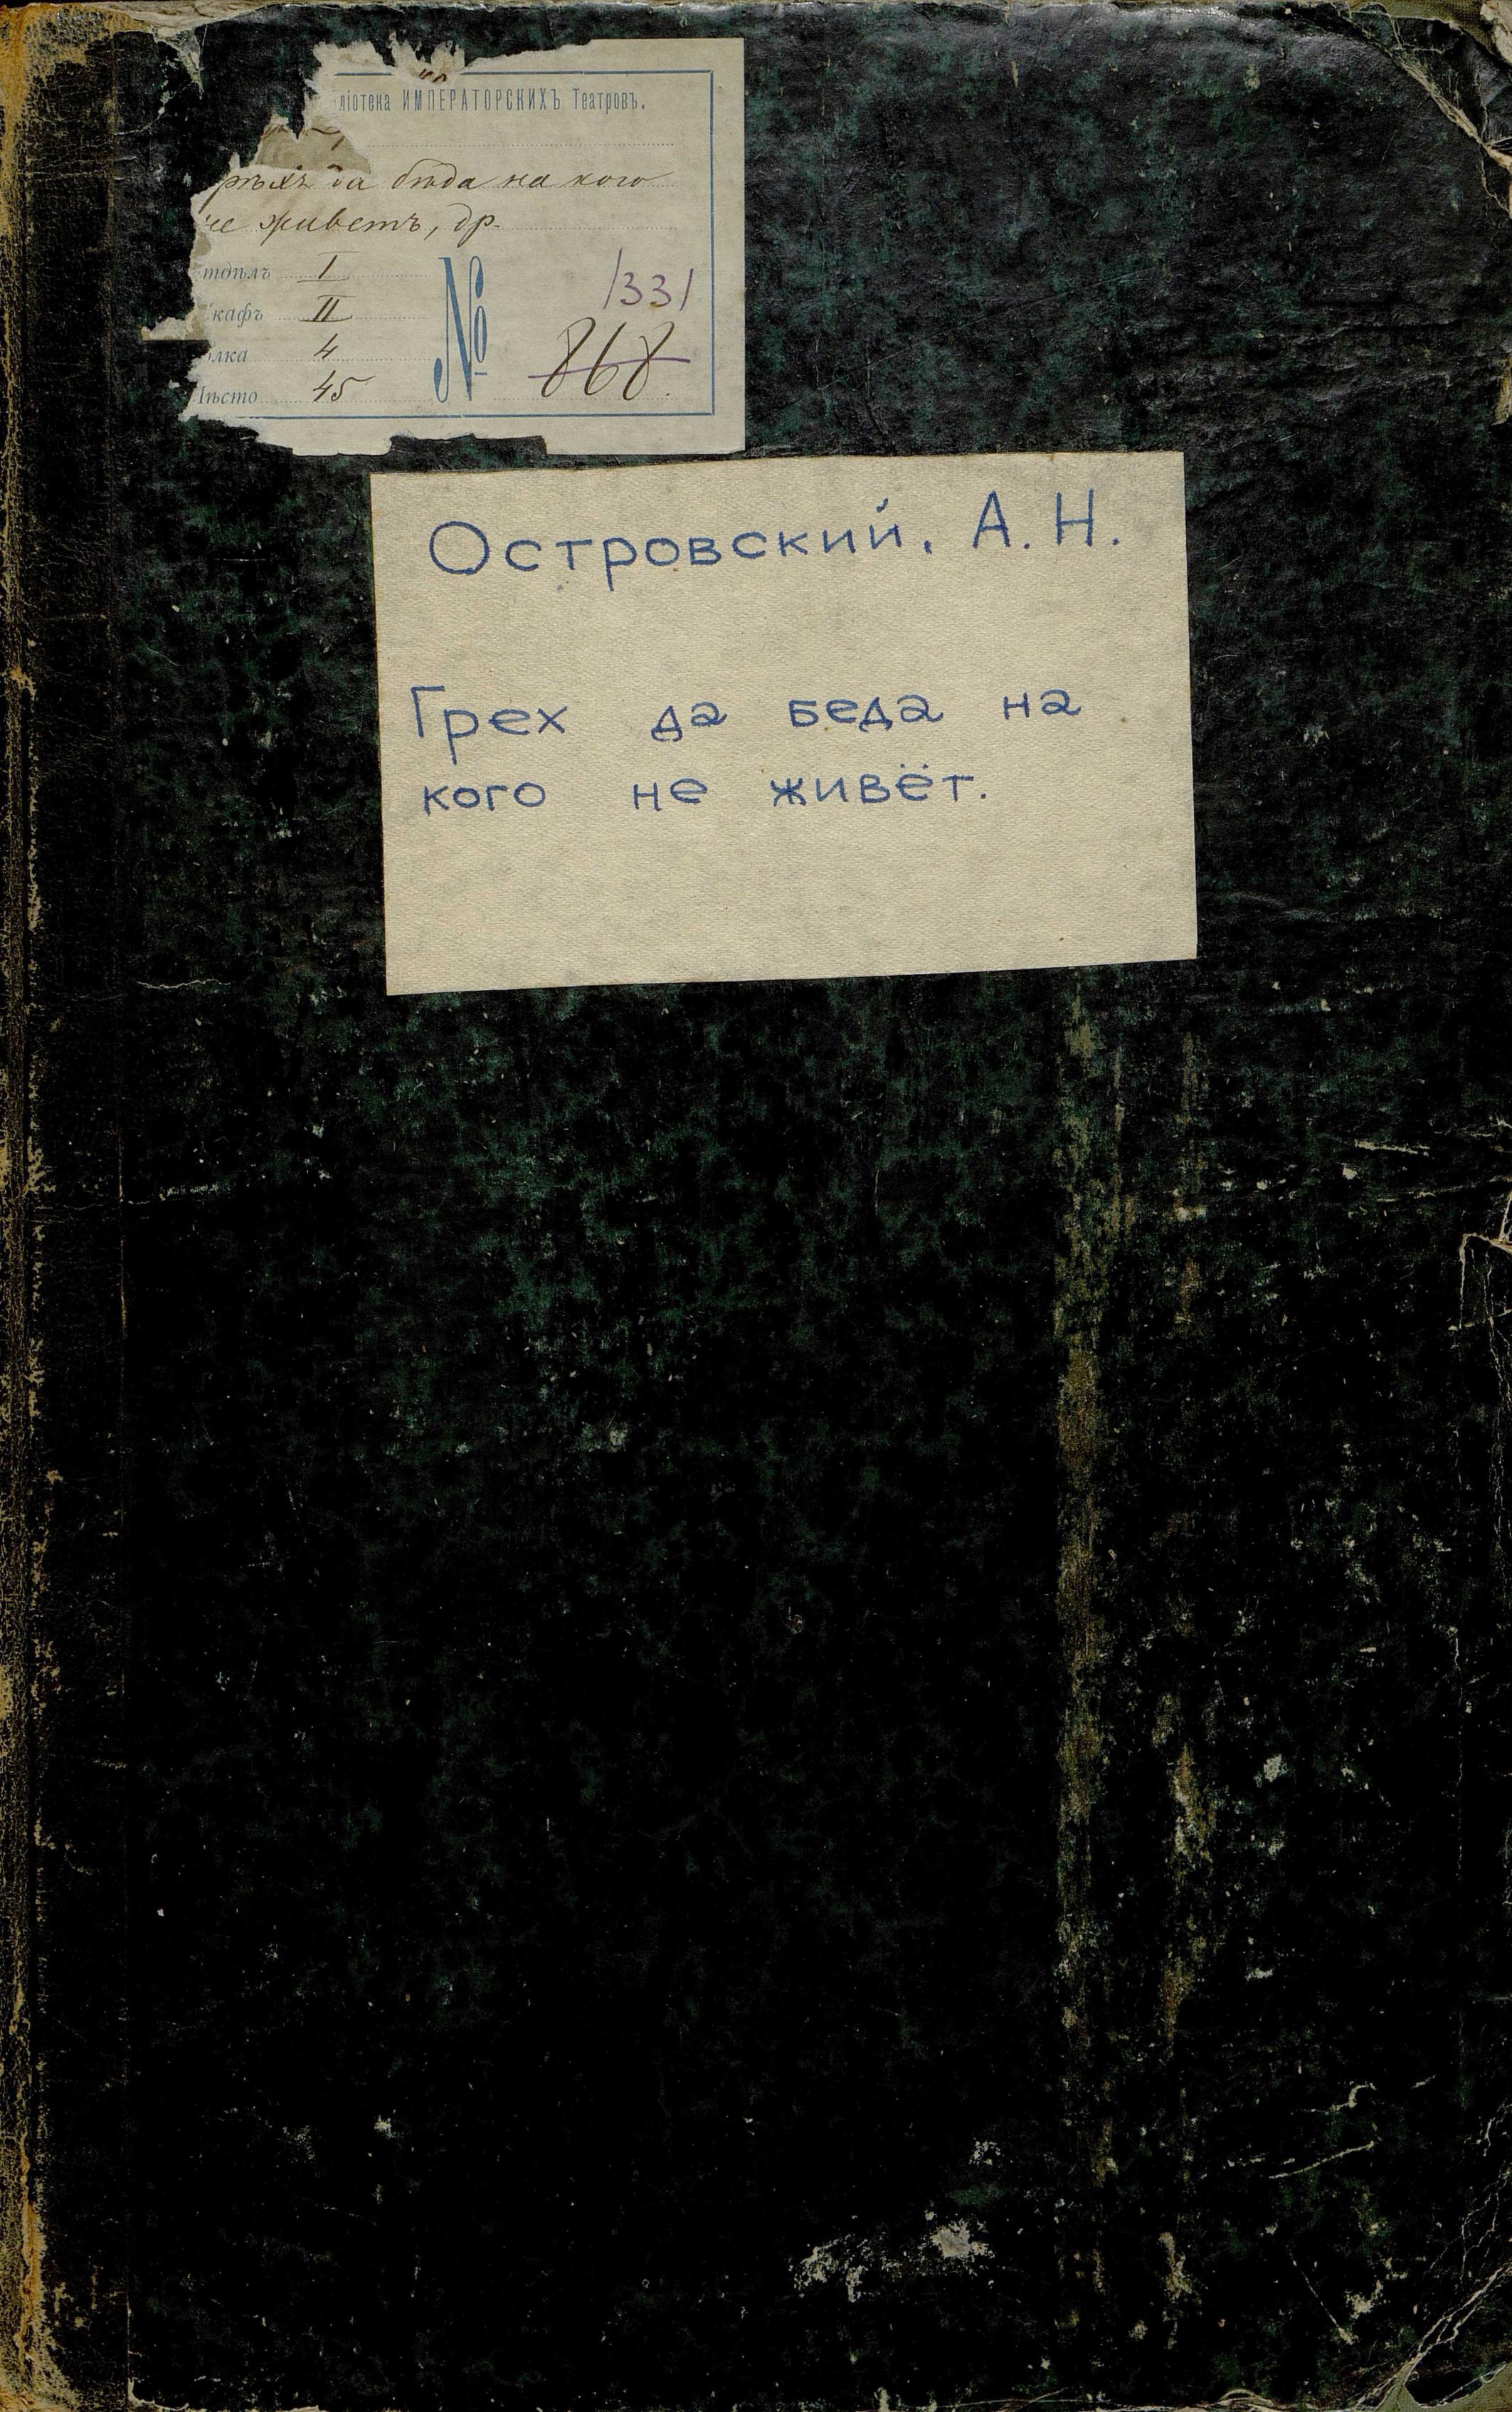 ліотека ИМПЕРАТОРСКИХЪ Театровъ.
рѣхъ да бѣда на кого
не живетъ, др.
тдѣлъ I
кафъ II
олка 4
ѣсто 45
№
1331
868.
Островский, А. Н.
Грех да беда на
кого не живёт.